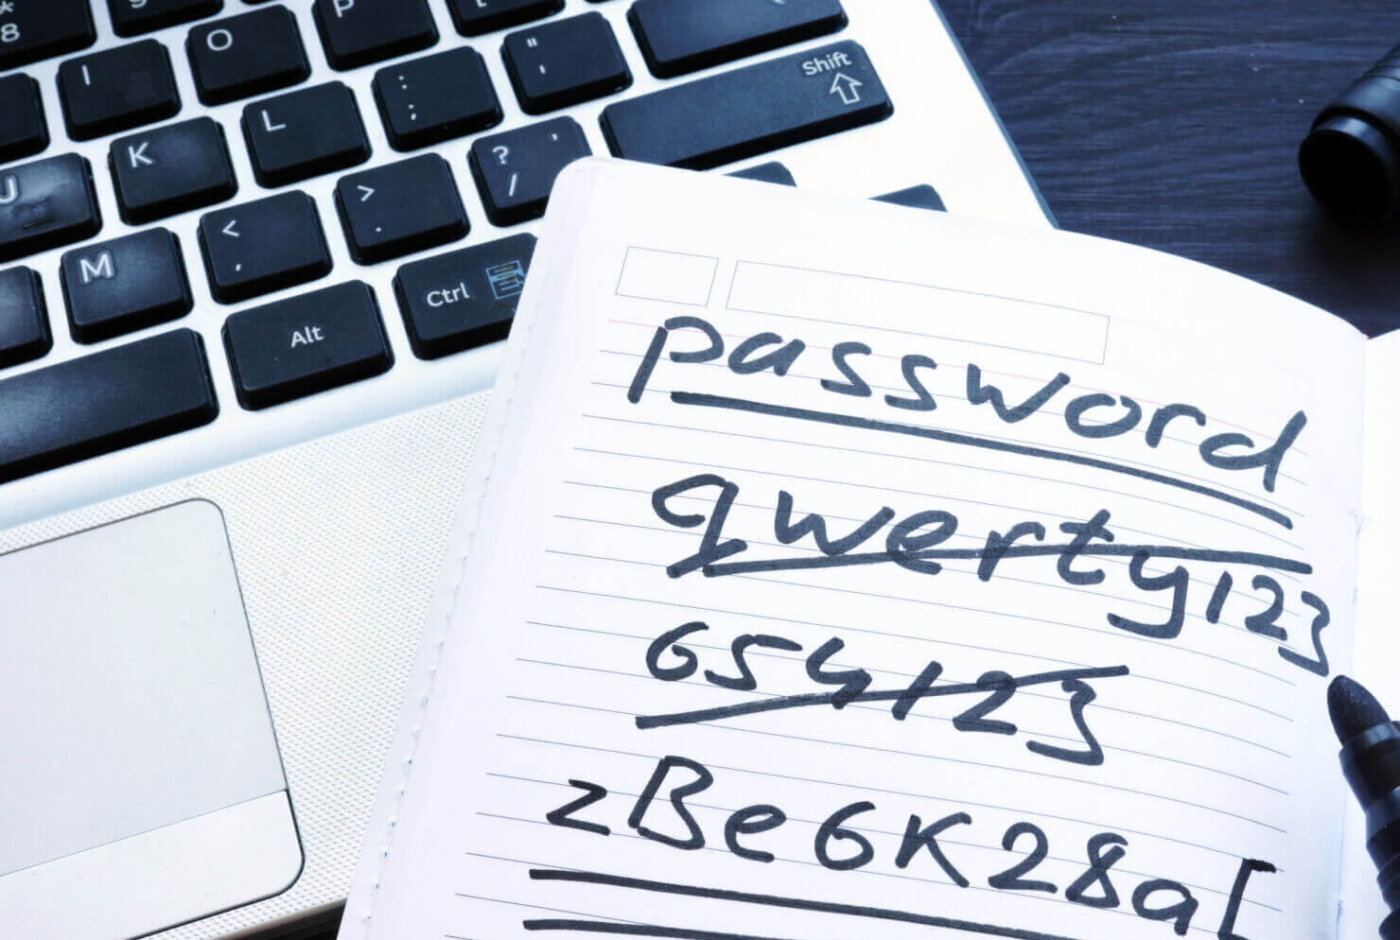 * 8 9 P [
I O : ; " '
U K L ? / Shift
M < , > .
Alt Ctrl
password
qwerty123
654123
zBe6K28a[